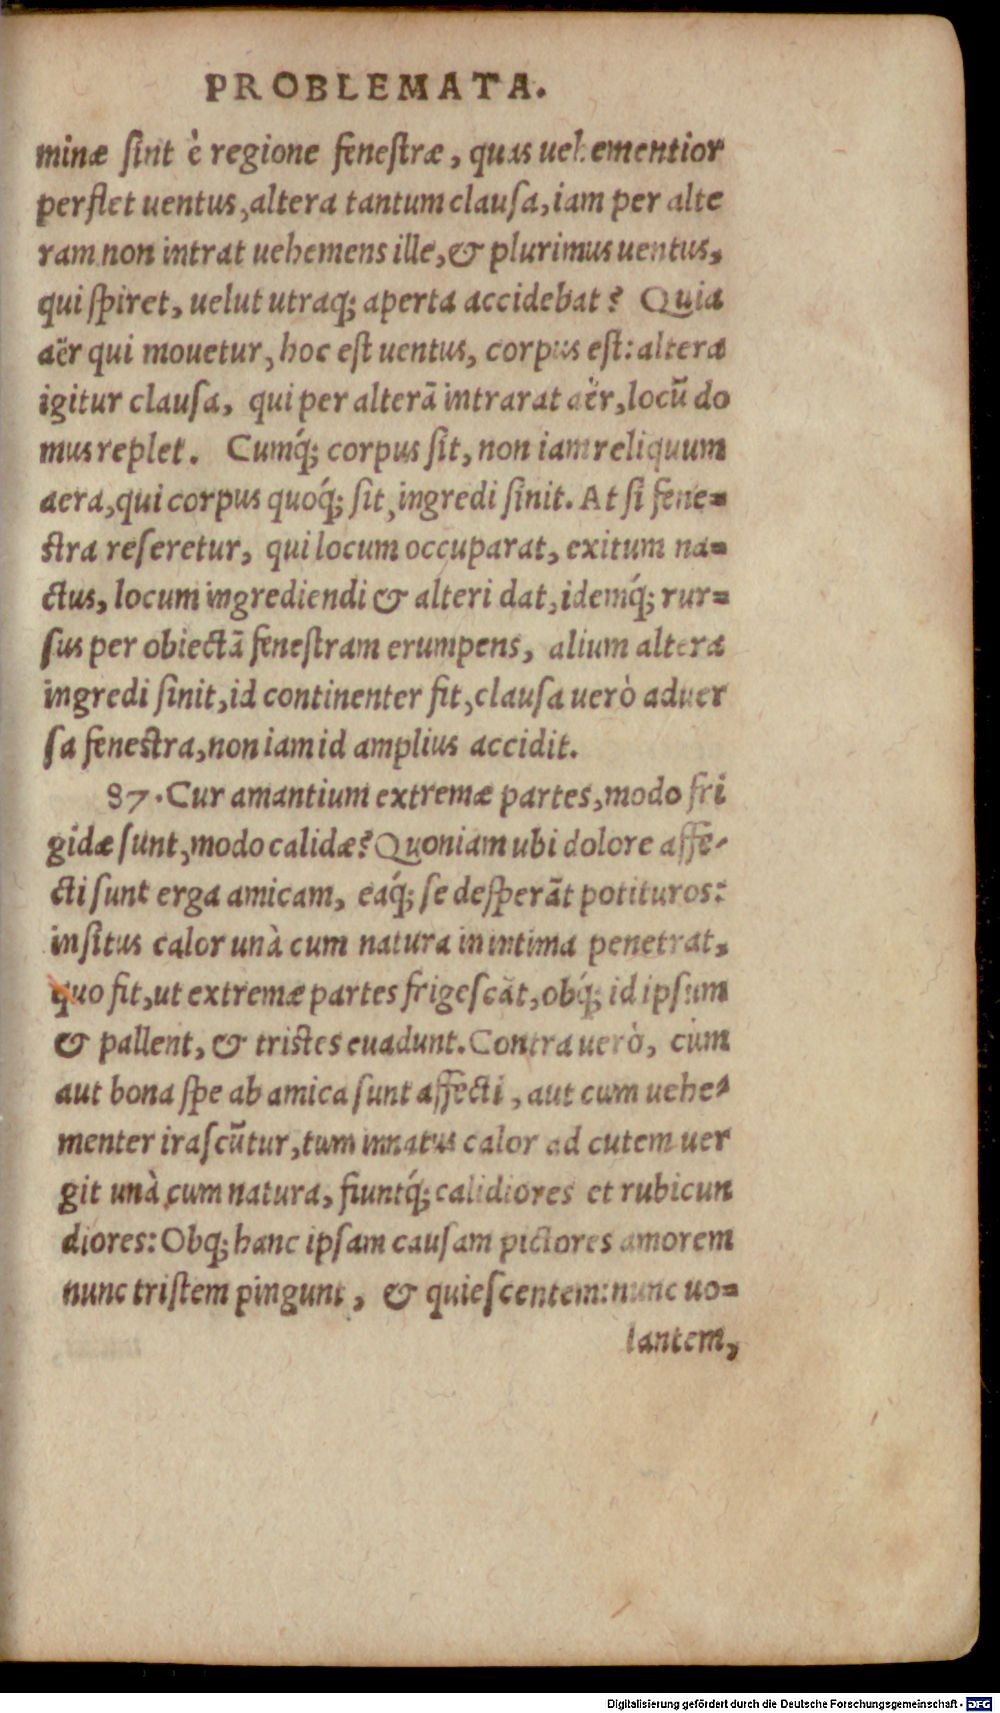 PROBLEMATA.
minæ ſint è regione feneſtræ, quas uehementior
perflet uentus, altera tantum clauſa, iam per alte
ram non intrat uehemens ille, & plurimus uentus,
qui ſpiret, uelut utraq; aperta accidebat? Quia
aër qui mouetur, hoc eſt uentus, corpus eſt: altera
igitur clauſa, qui per alterā intrarat aër, locū do
mus replet. Cumq́; corpus ſit, non iam reliquum
aera, qui corpus quoq́; ſit, ingredi ſinit. At ſi fene=
ſtra reſeretur, qui locum occuparat, exitum na=
ctus, locum ingrediendi & alteri dat, idemq́; rur=
ſus per obiectā feneſtram erumpens, alium altera
ingredi ſinit, id continenter fit, clauſa uerò aduer
ſa feneſtra, non iam id amplius accidit.
87. Cur amantium extremæ partes, modo fri
gidæ ſunt, modo calidæ? Quoniam ubi dolore affe-
cti ſunt erga amicam, eaq́; ſe deſperāt potituros:
inſitus calor unà cum natura in intima penetrat,
quo fit, ut extremæ partes frigeſcāt, obq́; id ipſum
& pallent, & triſtes euadunt. Contra uerò, cùm
aut bona ſpe ab amica ſunt affecti, aut cum uehe-
menter iraſcūtur, tum innatus calor ad cutem uer
git unà cum natura, fiuntq́; calidiores et rubicun
diores: Obq; hanc ipſam cauſam pictores amorem
nunc triſtem pingunt, & quieſcentem: nunc uo=
lantem,
Digitalisierung gefördert durch die Deutsche Forschungsgemeinschaft - DFG